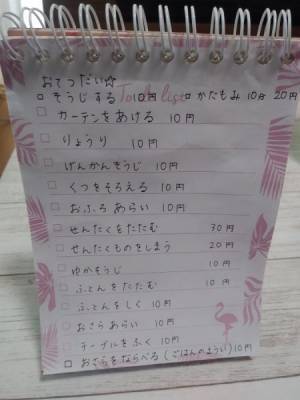 おてつだい☆
そうじする 10円 To do list かたもみ 10分 20円
カーテンをあける 10円
りょうり 10円
げんかんそうじ 10円
くつをそろえる 10円
おふろあらい 10円
せんたくをたたむ 30円
せんたくものをしまう 20円
ゆかそうじ 10円
ふとんをたたむ 10円
ふとんをしく 10円
おさらあらい 10円
テーブルをふく 10円
おさらをならべる(ごはんのようい)10円